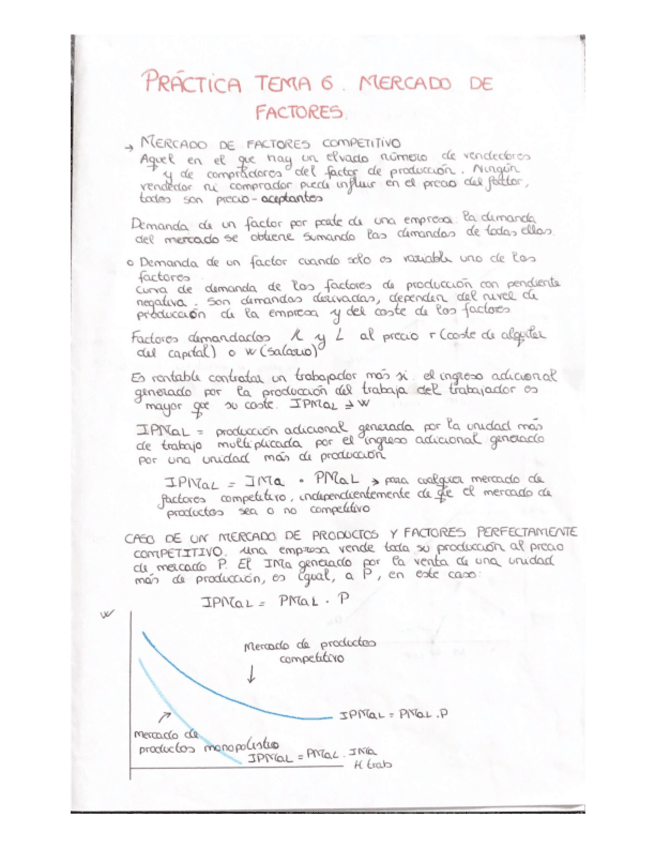 PRÁCTICA TEMA 6. MERCADO DE
FACTORES.
→ MERCADO DE FACTORES COMPETITIVO
Aquel en el que hay un elvado número de vendedores
y de compradores del factor de producción. Ningún
vendedor ni comprador puede influir en el precio del factor,
todos son precio-aceptantes
Demanda de un factor por parte de una empresa: la demanda
del mercado se obtiene sumando las demandas de todas ellas.
o Demanda de un factor cuando solo es variable uno de los
factores
curva de demanda de los factores de producción con pendiente
negativa. Son demandas derivadas, dependen del nivel de
producción de la empresa y del coste de los factores
Factores demandados K y L al precio r (coste de alquiler
del capital) o w (salario)
Es rentable contratar un trabajador más si el ingreso adicional
generado por la producción del trabajo del trabajador es
mayor que su coste. IPMaL ≥ W
IPMaL = producción adicional generada por la unidad más
de trabajo multiplicada por el ingreso adicional generado
por una unidad más de producción
IPMaL = IMa · PMaL → para cualquier mercado de
factores competitivo, independientemente de que el mercado de
productos sea o no competitivo
CASO DE UN MERCADO DE PRODUCTOS Y FACTORES PERFECTAMENTE
COMPETITIVO. una empresa vende toda su producción al precio
de mercado P. El IMa generado por la venta de una unidad
más de producción, es igual, a P, en este caso:
IPMaL = PMaL · P
W
Mercado de productos
competitivo
IPMaL = PMaL · P
mercado de
productos monopolístico
IPMaL = PMaL · IMa
H trab